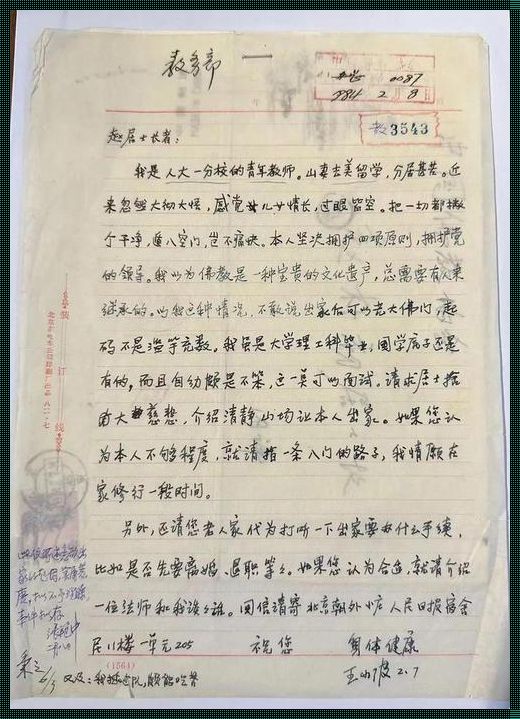 教务部
0087
1984 2 8
教3543
赵居士长者：
我是人大一分校的青年教师。山妻去美留学，分居甚苦。近
来忽然大彻大悟，感觉儿女情长，过眼皆空。把一切都撇
个干净，遁入空门，岂不痛快。本人坚决拥护四项原则，拥护党
的领导。我以为佛教是一种宝贵的文化遗产，总需要有人来
继承的。以我这种情况，不敢说出家后可以光大佛门，起
码不是滥竽充数。我虽是大学理工科毕业，国学底子还是
有的，而且自幼颇是不笨，这一点可以面试。请求居士拾
由大慈悲，介绍清静山场让本人出家。如果您认
为本人不够程度，就请指一条入门的路子，我情愿在
家修行一段时间。
另外，还请您老人家代为打听一下出家要办什么手续，
比如是否先要离婚、退职等々。如果您认为合适，就请介绍
一位法师和我谈々话。回信请寄北京朝外小庄人民日报宿舍
民11楼一单元205 祝您 身体健康
王小波 2.7
(1564)
装订线